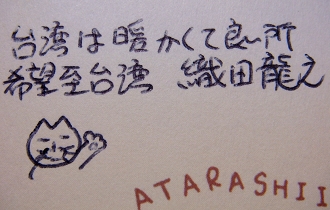 台湾は暖かくて良い所
希望至台湾 織田龍之
ATARASHII